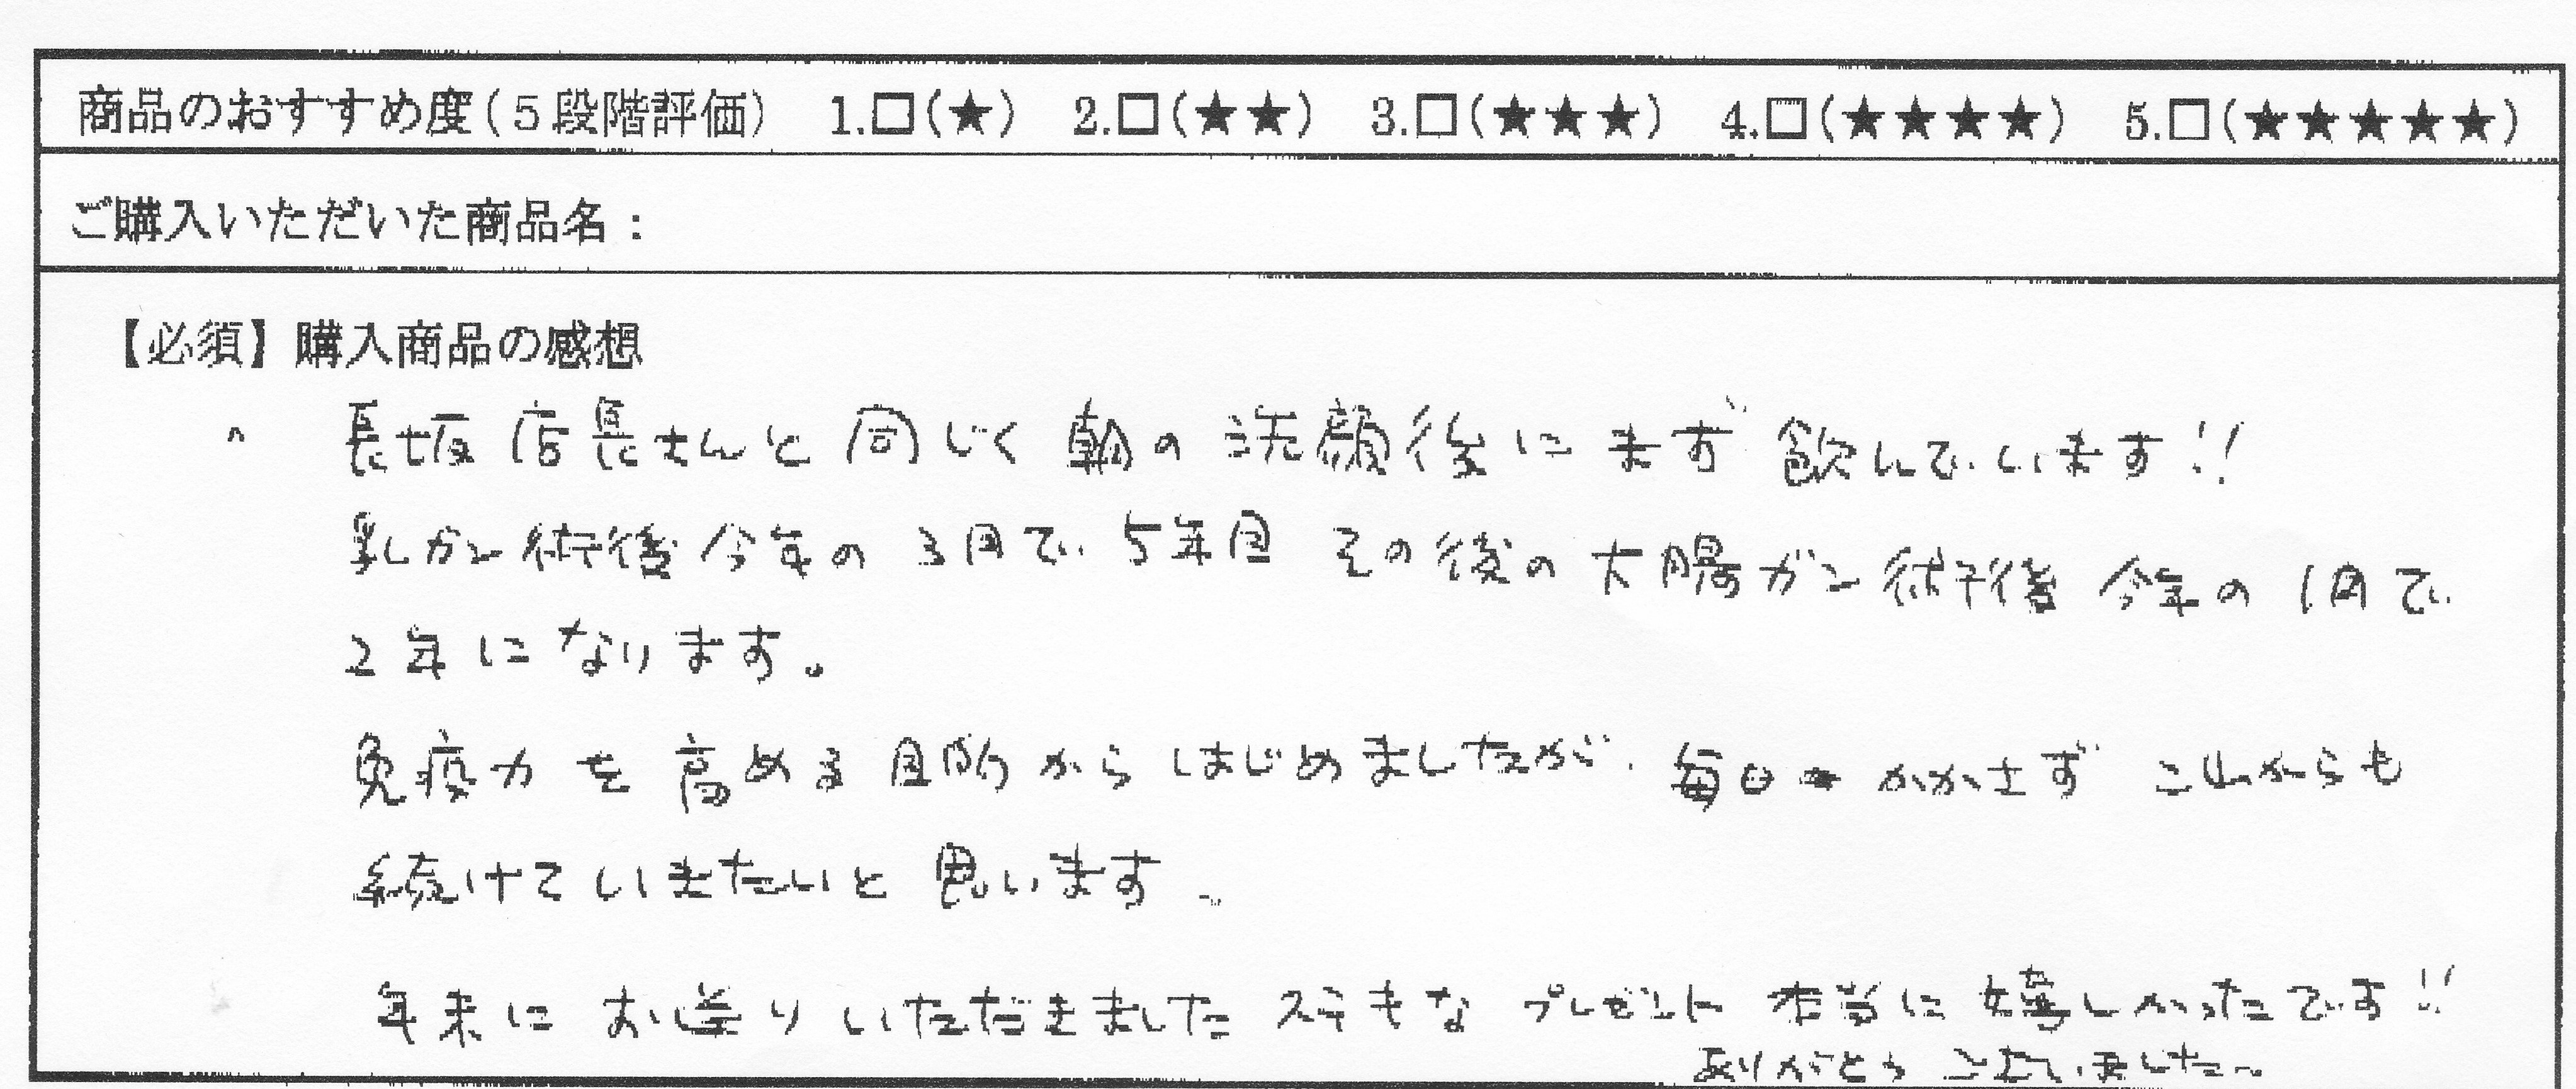 商品のおすすめ度(5段階評価) 1.□(★) 2.□(★★) 3.□(★★★) 4.□(★★★★) 5.□(★★★★★)
ご購入いただいた商品名：
【必須】購入商品の感想
長坂店長さんと同じく朝の洗顔後にまず飲んでいます!!
乳ガン術後今年の3月で5年目 その後の大腸ガン術後今年の1月で
2年になります。
免疫力を高める目的からはじめましたが、毎日かかさずこれからも
続けていきたいと思います。
年末にお送りいただきましたステキなプレゼント本当に嬉しかったです!!
ありがとうございました〜